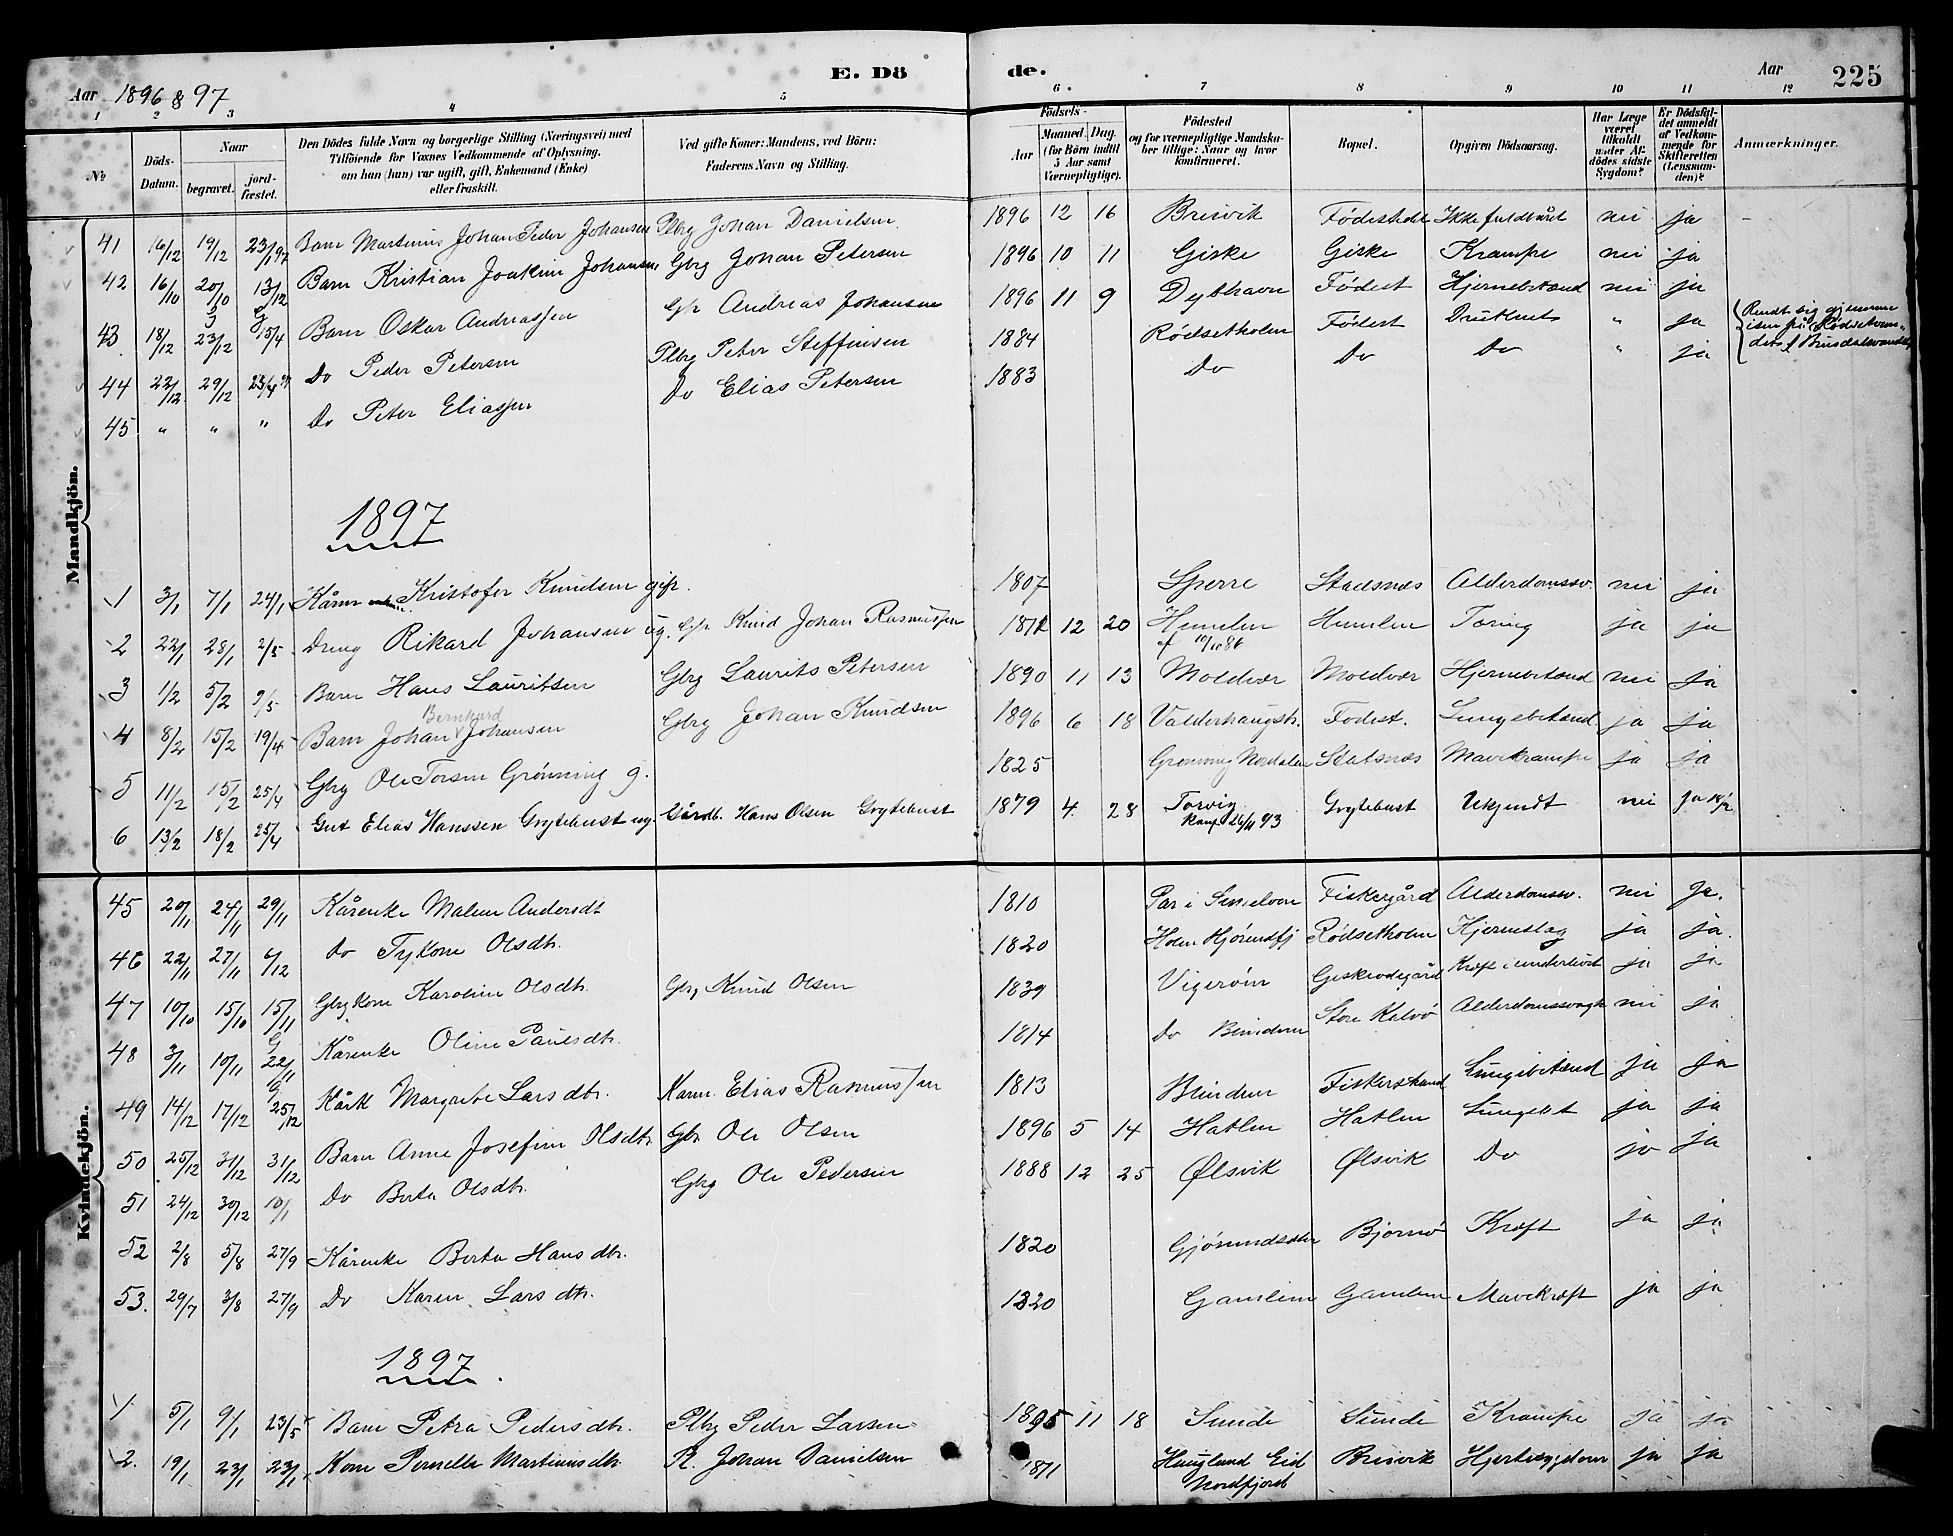 E. Dö de.
Aar 1896 & 97 Aar 225
1 2 3 4 5 6. 7 8 9 10 11 12
№
Döds-Datum.
Naar begravet. jordfæstet.
Den Dödes fulde Navn og borgerlige Stilling (Næringsvei) med Tilföiende for Voxnes Vedkommende af Oplysning, om han (hun) var ugift, gift, Enkemand (Enke) eller fraskilt.
Ved gifte Koner: Mandens, ved Börn: Faderens Navn og Stilling.
Födsels- Aar Maaned. Dag. (for Börn indtil 5 Aar samt Værnepligtige).
Födested og for værnepligtige Mandskaber tillige: Naar og hvor konfirmeret.
Bopæl.
Opgiven Dödsaarsag.
Har Læge været tilkaldt under Afdödes sidste Sygdom?
Er Dödsfaldet anmeldt af Vedkommende for Skifteretten (Lensmanden)?
Anmærkninger.
Mandkjön.
41 16/12 19/12 23/1 97 Barn Martinus Johan Peder Johansen Plbg Johan Danielsen 1896 12 16 Brisvik Födestedet Ikke fuldbåret nei ja
42 16/10 20/10 13/12 Barn Kristian Joakim Johansen Gbg Johan Petersen 1896 10 11 Giske Giske Krampe nei ja
43 18/12 23/12 15/4 Barn Oskar Andreassen Gbr Andreas Johansen 1896 11 9 Dybhavn Födest Hjernebetænd nei ja
44 22/12 29/12 23/4 97 Do Peder Petersen Plbg Peter Steffensen 1884 Rödsetholm Födest Druknet " ja
45 " " " Do Peter Eliassen Do Elias Petersen 1883 Do Do Do " ja
Rendt sig gjennem isen på Rödsetvan-
1897
1 3/1 7/1 24/1 Kårm Kristofer Knudsen gift. 1807 Sperre Stadsnæs Alderdomssv. nei ja
2 22/1 28/1 2/5 Dreng Rikard Johansen ug. Gbr Knud Johan Rasmussen 1871 12 20 Humlen Humlen Tæring ja ja
3 1/2 5/2 9/5 Barn Hans Lauritsen Gbrg Laurits Petersen 1890 11 13 Moldvær Moldvær Hjernebetænd nei ja
4 8/2 15/2 19/4 Barn Johan Bernhard Johansen Gbrg Johan Knudsen 1896 6 18 Valderhaugstr. Födest. Lungebetænd ja ja
5 11/2 15/2 25/4 Gbrg Ole Torsen Grönning g. 1825 Grönning Nordalen Statsnæs Mavekrampe ja ja
6 13/2 18/2 25/4 Gut Elias Hanssen Grytebust ug. Gårdb. Hans Olsen Grytebust 1879 4 28 Torvig Konf 26/11 93 Grytebust Ukjendt nei ja
Kvindekjön.
45 20/11 24/11 29/11 Kårenke Malene Andersdt 1810 Fiskergård Alderdomssv. nei ja.
46 22/11 27/11 6/12 Do Olsdtr. 1820 Holm Hjörendfj Rödsetholm Hjerneslag ja ja.
47 10/10 15/10 15/11 Gbrgkone Karoline Olsdtr. Gbrg Knud Olsen 1839 Vigeröin Giskeödegård Kræft i underlivet ja ja
48 3/11 10/11 22/11 Kårenke Oline Paulsdtr. 1814 Do Blindem Store Kalvö Alderdomssvagh nei ja
49 14/12 17/12 25/12 Kårk Margrethe Larsdtr. Kårm. Elias Rasmussen 1813 Blindem Fiskerstrand Lungebetænd ja ja
50 25/12 31/12 31/12 Barn Anne Josefine Olsdtr Gbr Ole Olsen 1896 5 14 Hatlen Hatlen Lungebet ja ja
51 24/12 30/12 10/1 Do Berta Olsdtr. Gbrg Ole Pedersen 1888 12 25 Ølsvik Ølsvik Do ja ja
52 2/8 5/8 27/9 Kårenke Berta Hansdtr. 1820 Bjørnö Kræft ja ja
53. 29/7 3/8 27/9 Do Karen Larsdtr. 1820 Gamlem Gamlem Mavekræft ja ja
1897
1 5/1 9/1 23/5 Barn Petra Pedersdtr. Plbg Peder Larsen 1895 11 18 Sunde Sunde Krampe ja ja
2. 19/1 23/1 23/1 Kone Pernelle Martinusdtr P. Johan Danielsen 1871 Hauglund Eid Nordfjord Brisvik Hjertesygdom ja ja